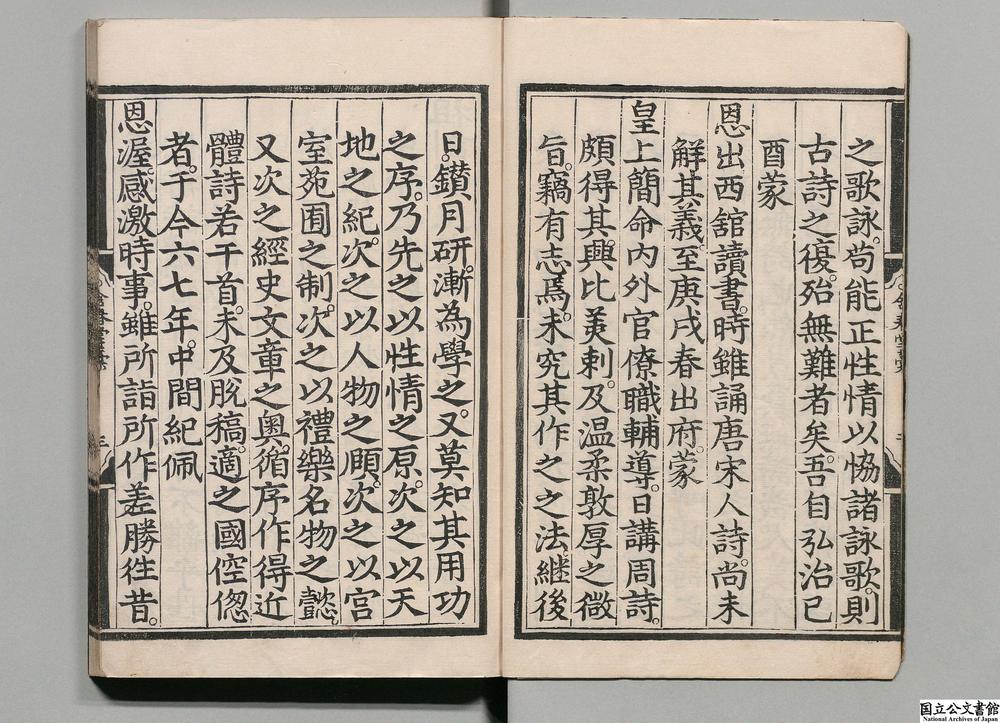 之歌詠。苟能正性情以恊諸詠歌。則
古詩之復。殆無難者矣。吾自弘治己
酉蒙
恩出西舘讀書。時雖誦唐宋人詩。尚未
解其義。至庚戌春出府。蒙
皇上簡命内外官僚職輔導。日講周詩。
頗得其興比美刺。及温柔敦厚之微
旨。竊有志焉。未究其作之之法。継後
日鑚月研。漸為學之。又莫知其用功
之序。乃先之以性情之原。次之以天
地之紀。次之以人物之頤。次之以宫
室苑囿之制。次之以禮樂名物之懿。
又次之經史文章之奥。循序作得近
體詩若干首。未及脱稿。適之國倥偬
者。于今六七年。中間紀佩
恩渥。感激時事。雖所詣所作差勝徃昔。
三
国立公文書館
National Archives of Japan